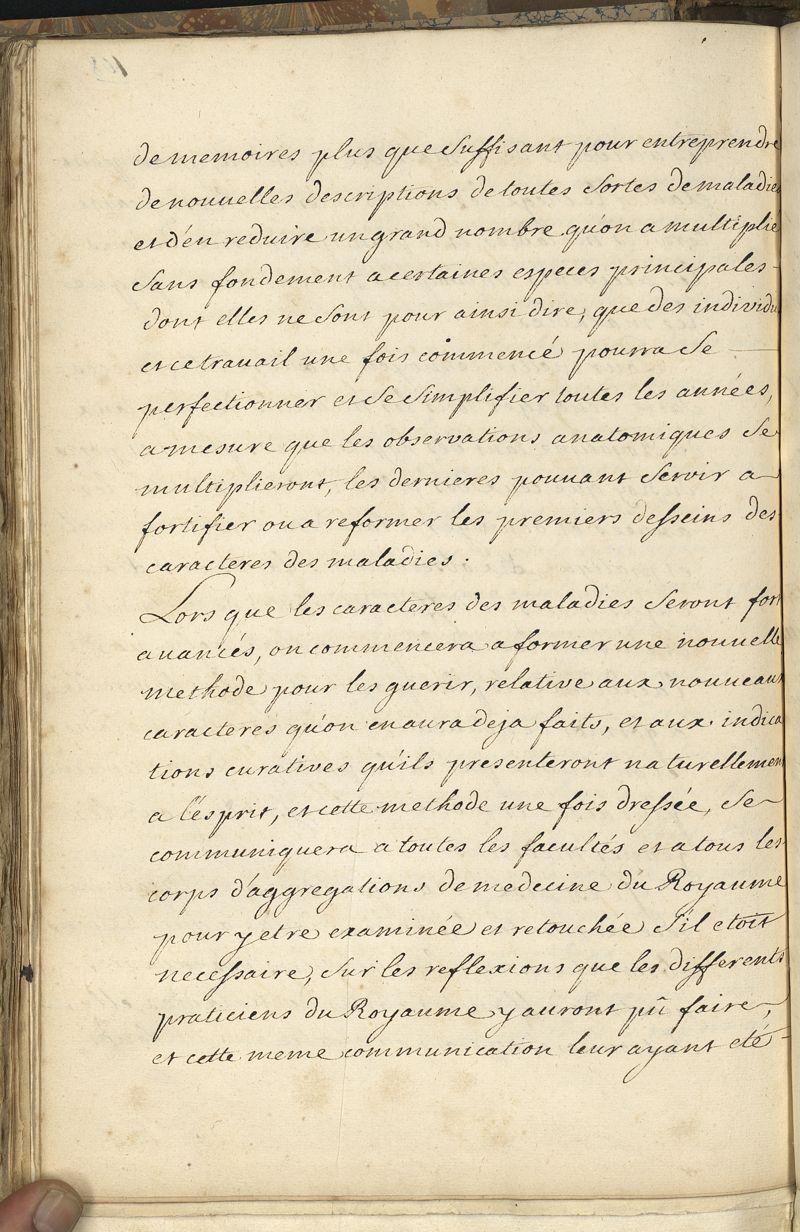 de memoires plus que suffisant pour entreprendre
de nouuelles descriptions de toutes sortes de maladies
et d'en reduire un grand nombre qu'on a multiplie
sans fondement a certaines especes principales
dont elles ne sont pour ainsi dire, que des individu
et ce travail une fois commencé pourra se
perfectionner et se simplifier toutes les années,
a mesure que les observations anatomiques se
multiplieront, les dernieres pouuant servir a
fortifier ou a reformer les premiers desseins des
caracteres des maladies.
Lors que les caracteres des maladies seront fort
auancés, on commencera a former une nouuelle
methode pour les guerir, relative aux nouueaux
caracteres qu'on en aura deja faits, et aux indica
tions curatives qu'ils presenteront naturellement
a l'esprit, et cette methode une fois dressée, se
communiquera a toutes les facultés et a tous les
corps d'aggregations de medecine du Royaume
pour y etre examinée et retouchée s'il etoit
necessaire, sur les reflexions que les differents
praticiens du Royaume y auront pû faire,
et cette meme communication leur ayant eté